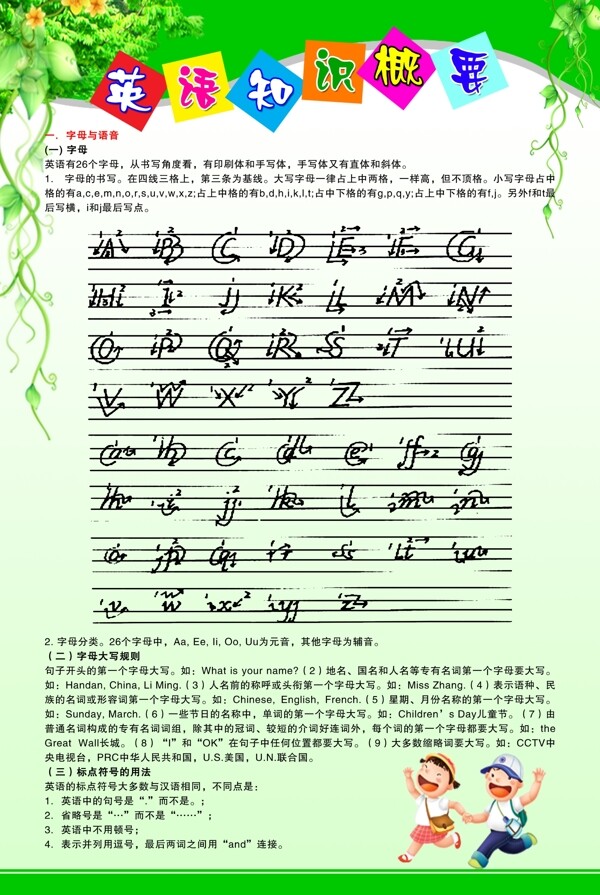 英语知识概要
一. 字母与语音
(一) 字母
英语有26个字母，从书写角度看，有印刷体和手写体，手写体又有直体和斜体。
1. 字母的书写。在四线三格上，第三条为基线。大写字母一律占上中两格，一样高，但不顶格。小写字母占中
格的有a,c,e,m,n,o,r,s,u,v,w,x,z;占上中格的有b,d,h,i,k,l,t;占中下格的有g,p,q,y;占上中下格的有f,j。另外f和t最
后写横，i和j最后写点。
A B C D E F G
H I J K L M N
O P Q R S T U
V W X Y Z
a b c d e f g
h i j k l m n
o p q r s t u
v w x y z
2. 字母分类。26个字母中，Aa, Ee, Ii, Oo, Uu为元音，其他字母为辅音。
（二）字母大写规则
句子开头的第一个字母大写。如：What is your name?（2）地名、国名和人名等专有名词第一个字母要大写。
如：Handan, China, Li Ming.（3）人名前的称呼或头衔第一个字母大写。如：Miss Zhang.（4）表示语种、民
族的名词或形容词第一个字母大写。如：Chinese, English, French.（5）星期、月份名称的第一个字母大写。
如：Sunday, March.（6）一些节日的名称中，单词的第一个字母大写。如：Children’s Day儿童节。（7）由
普通名词构成的专有名词词组，除其中的冠词、较短的介词好连词外，每个词的第一个字母都要大写。如：the
Great Wall长城。（8）“I”和“OK”在句子中任何位置都要大写。（9）大多数缩略词要大写。如：CCTV中
央电视台，PRC中华人民共和国，U.S.美国，U.N.联合国。
（三）标点符号的用法
英语的标点符号大多数与汉语相同，不同点是：
1. 英语中的句号是“.”而不是。；
2. 省略号是“…”而不是“……”；
3. 英语中不用顿号；
4. 表示并列用逗号，最后两词之间用“and”连接。